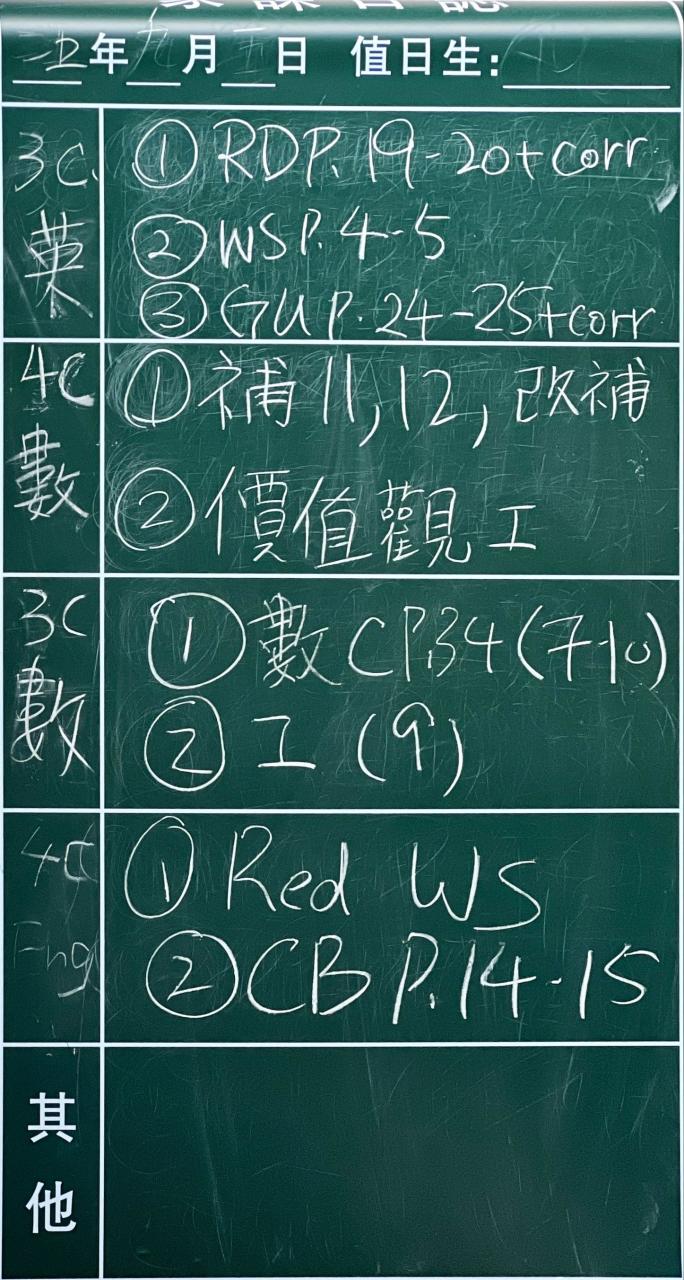 家課日誌
二五年九月三日 值日生:
3C.
英
① RDP. 19-20+corr
② WSP. 4-5
③ GUP. 24-25+corr
4C
數
① 補 11, 12, 改補
② 價值觀工
3C
數
① 數 CP.34 (7-10)
② 工 (9)
4C
Eng
① Red WS
② CB P.14-15
其
他